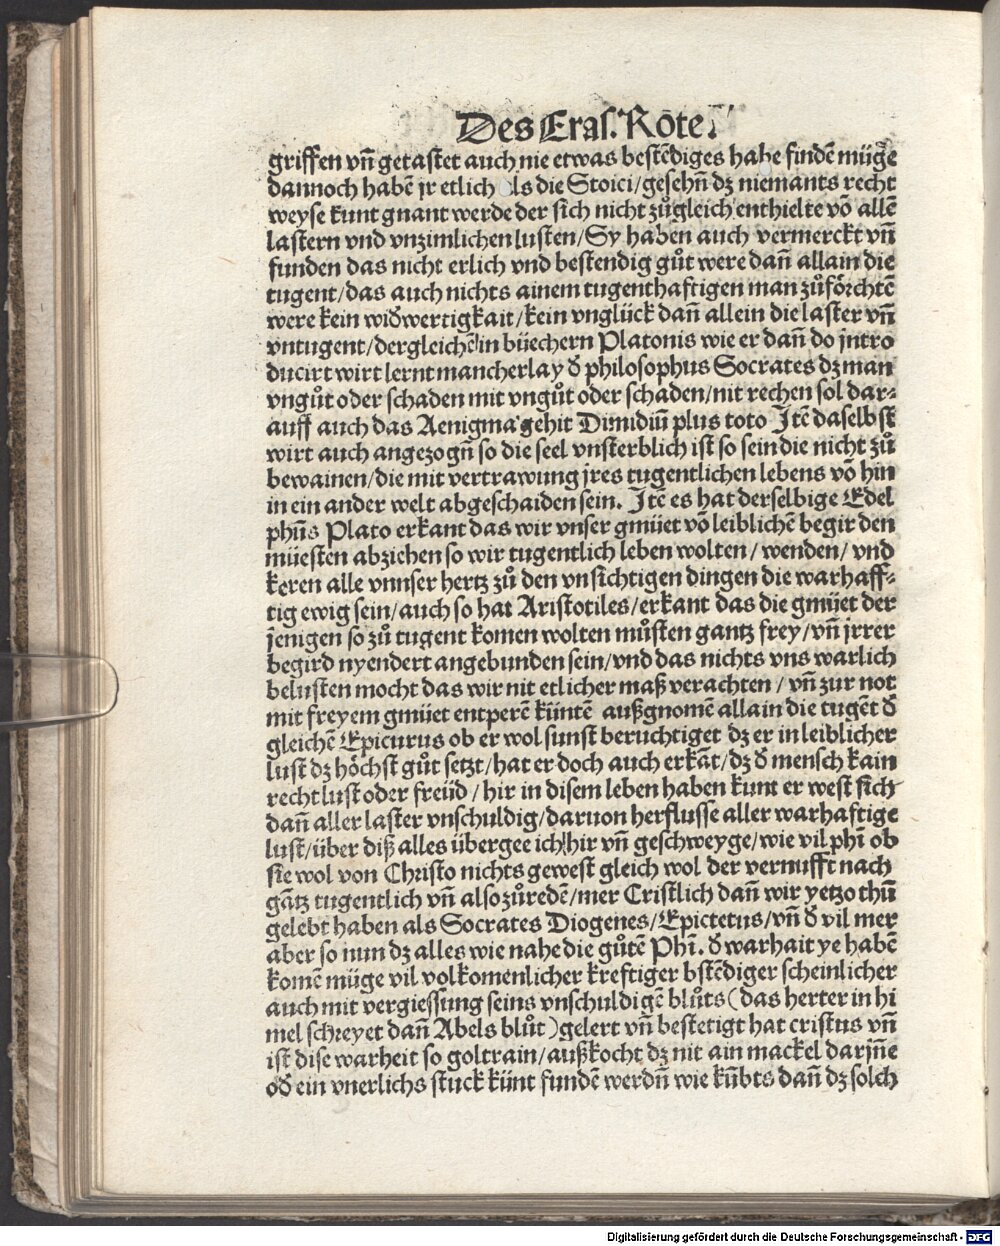 Des Eras. Rōte.
griffen vn̄ getastet auch nie etwas bestēdiges habe findē müge
dannoch habē jr etlich als die Stoici/gesehn̄ dz niemants recht
weyse kunt gnant werde der sich nicht zůgleich enthielte vō allē
lastern vnd vnzimlichen lusten/Sy haben auch vermerckt vn̄
funden das nicht erlich vnd bestendig gůt were dan̄ allain die
tugent/das auch nichts ainem tugenthaftigen man zůförchtē
were kein wiđwertigkait/kein vnglück dan̄ allein die laster vn̄
vntugent/dergleichē in büechern Platonis wie er dan̄ do intro
ducirt wirt lernt mancherlay đ philosophus Socrates dz man
vngůt oder schaden mit vngůt oder schaden/nit rechen sol dar⸗
auff auch das Aenigma gehit Dimidiū plus toto Itē daselbst
wirt auch angezogn̄ so die seel vnsterblich ist so sein die nicht zů
bewainen/die mit vertrawung jres tugentlichen lebens vō hin
in ein ander welt abgeschaiden sein. Itē es hat derselbige Edel
phūs Plato erkant das wir vnser gmüet vō leiblichē begir den
müesten abziehen so wir tugentlich leben wolten/wenden/vnd
keren alle vnnser hertz zů den vnsichtigen dingen die warhaff⸗
tig ewig sein/auch so hat Aristotiles/erkant das die gmüet der
jenigen so zů tugent komen wolten můsten gantz frey/vn̄ jrrer
begird nyendert angebunden sein/vnd das nichts vns warlich
belusten mocht das wir nit etlicher maß verachten/vn̄ zur not
mit freyem gmüet entperē küntē außgnomē allain die tugēt đ
gleichē Epicurus ob er wol sunst beruchtiget dz er in leiblicher
lust dz höchst gůt setzt/hat er doch auch erkāt/dz đ mensch kain
recht lust oder freüd/hir in disem leben haben kunt er west sich
dan̄ aller laster vnschuldig/daruon herflusse aller warhaftige
lust/über diß alles übergee ich hir vn̄ geschweyge/wie vil phī ob
sie wol von Christo nichts gewest gleich wol der vernufft nach
gātz tugentlich vn̄ also zůredē/mer Cristlich dan̄ wir yetzo thūn
gelebt haben als Socrates Diogenes/Epictetus/vn̄ đ vil mer
aber so nun dz alles wie nahe die gůtē Phī. đ warhait ye habē
komē müge vil volkomenlicher kreftiger bstēdiger scheinlicher
auch mit vergiessung seins vnschuldigē blůts (das herter in hi
mel schreyet dan̄ Abels blůt) gelert vn̄ bestetigt hat cristus vn̄
ist dise warheit so goltrain/außkocht dz nit ain mackel darjn̄e
ođ ein vnerlichs stuck künt fundē werdn̄ wie kn̄bts dan̄ dz solch
Digitalisierung gefördert durch die Deutsche Forschungsgemeinschaft - DFG